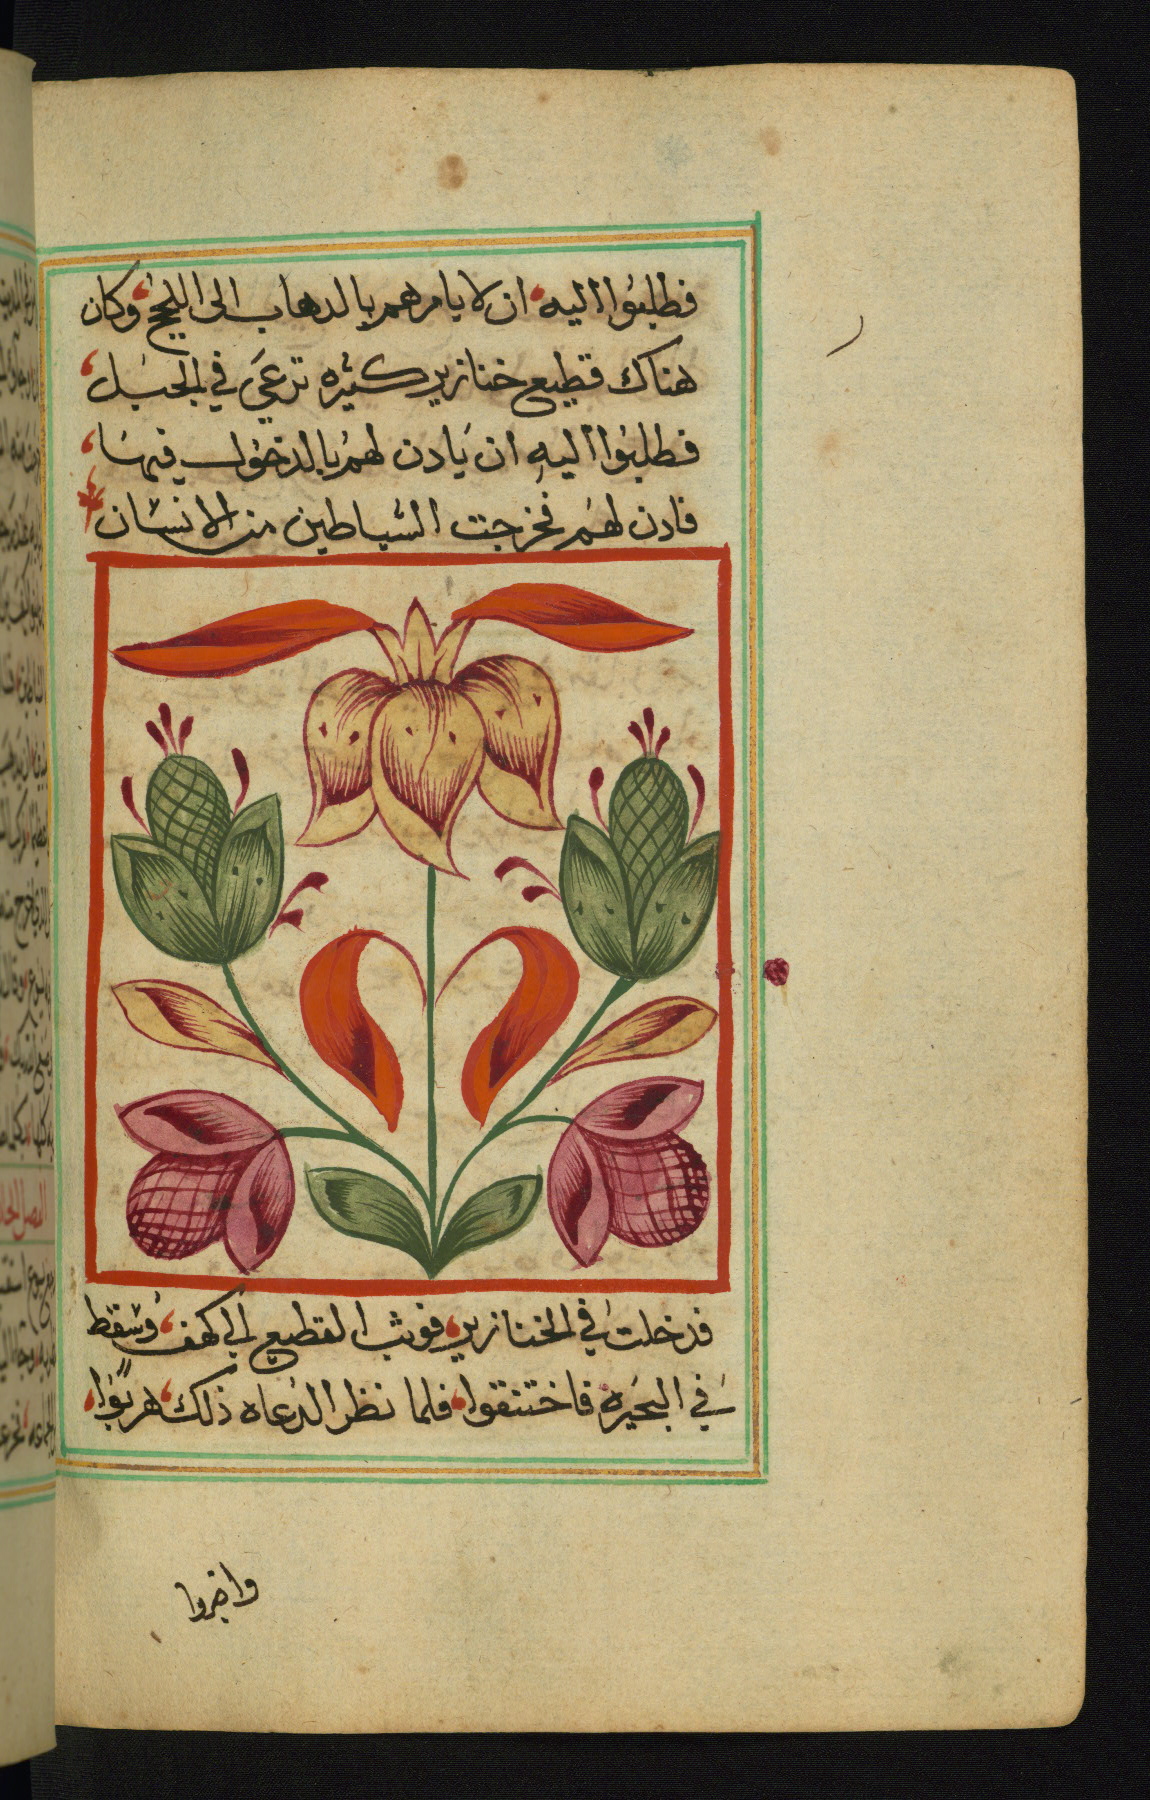 فطلبوا اليه ان لا يامرهم بالدهاب الى اللجج وكان
هناك قطيع خنازير كثيره ترعي في الجبل
فطلبوا اليه ان يادن لهم بالدخول فيها
فادن لهم فخرجت الشياطين من الانسان
فدخلت في الخنازير فوثب القطيع الي كهف وسقط
في البحيره فاختنقوا فلما نظر الرعاه ذلك هربوا
واخبروا